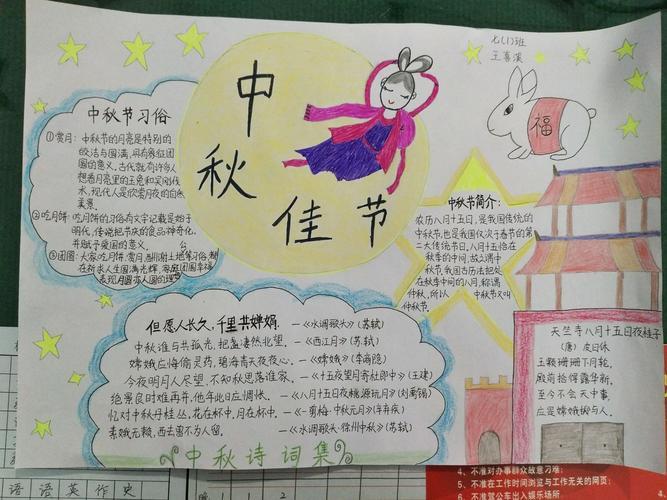 七(1)班
王喜溪
中
秋
佳
节
福
中秋节习俗
①赏月：中秋节的月亮是特别的
皎洁与圆满，具有象征团
圆的意义。古代就有许多人
想着月亮里的玉兔和吴刚伐
木，现代人是欣赏月夜的自然
美景。
②吃月饼：吃月饼的习俗有文字记载是始于
明代，传说把节庆的食品神奇化，
并赋予爱国的意义。
③团圆：大家吃月饼、赏月
表现月圆亦人团的理
中秋节简介：
农历八月十五日，是我国传统的
中秋节，也是我国仅次于春节的第
二大传统节日，八月十五恰在
秋季的中间，故谓之中
秋节，我国古历法把处
在秋季中间的八月，称谓
仲秋，所以 中秋节又叫
仲秋节。
但愿人长久，千里共婵娟。——《水调歌头》（苏轼）
中秋谁与共孤光，把盏凄然北望。——《西江月》（苏轼）
嫦娥应悔偷灵药，碧海青天夜夜心。——《嫦娥》（李商隐）
今夜明月人尽望，不知秋思落谁家。——《十五夜望月寄杜郎中》（王建）
绝景良时难再并，他年此日应惆怅。——《八月十五日夜桃源玩月》（刘禹锡）
忆对中秋丹桂丛，花在杯中，月在杯中。——《一剪梅·中秋元月》（辛弃疾）
素娥无赖，西去曾不为人留。——《水调歌头·徐州中秋》（苏轼）
中秋诗词集
天竺寺八月十五日夜桂子
（唐）皮日休
玉颗珊珊下月轮，
殿前拾得露华新。
至今不会天中事，
应是嫦娥掷与人。
语 语 英 作 史
晚 1 1 2
4、不准对办事群众故意刁难；
5、不准在工作时间浏览与工作无关的网页；
6、不准驾公车出入娱乐场所。